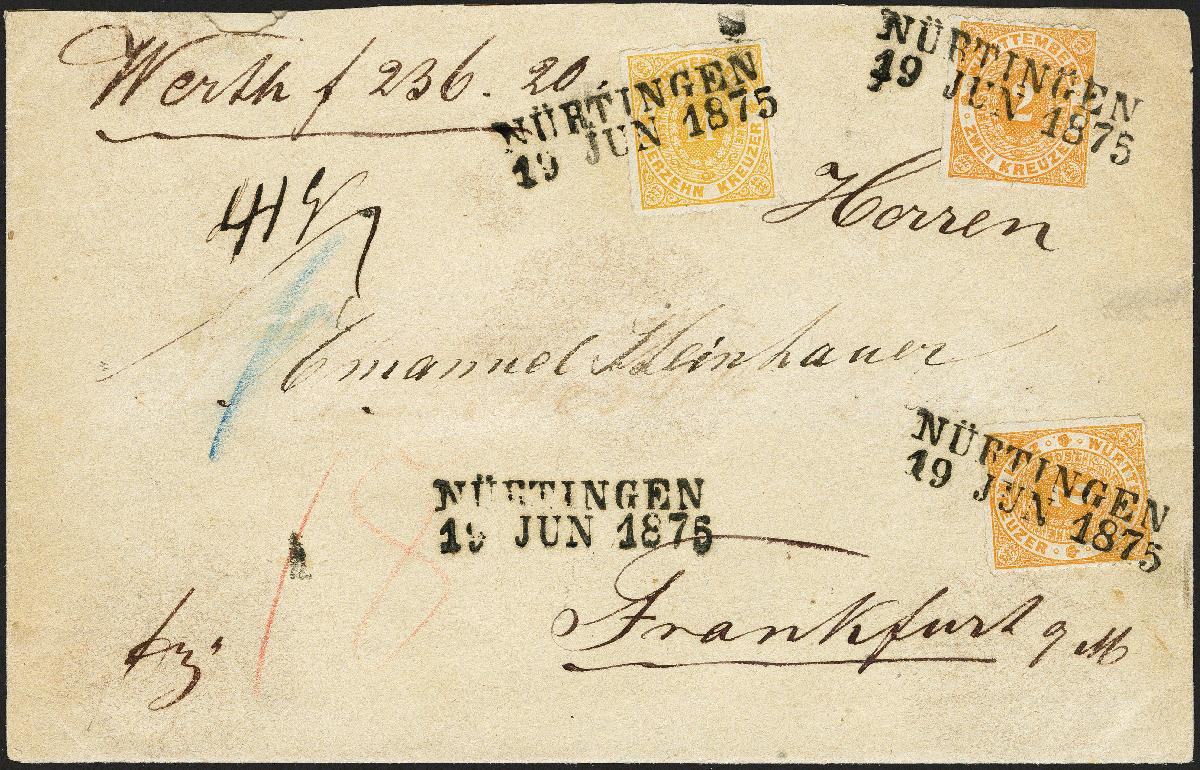 Werth f 236. 20.
NÜRTINGEN
19 JUN 1875
VIERZEHN KREUZER
NÜRTINGEN
19 JUN 1875
WÜRTTEMBERG
2
ZWEI KREUZER
Herren
Emanuel Steinhauer
NÜRTINGEN
19 JUN 1875
WÜRTT
KREUZER
NÜRTINGEN
19 JUN 1875
18
Frankfurt a/M